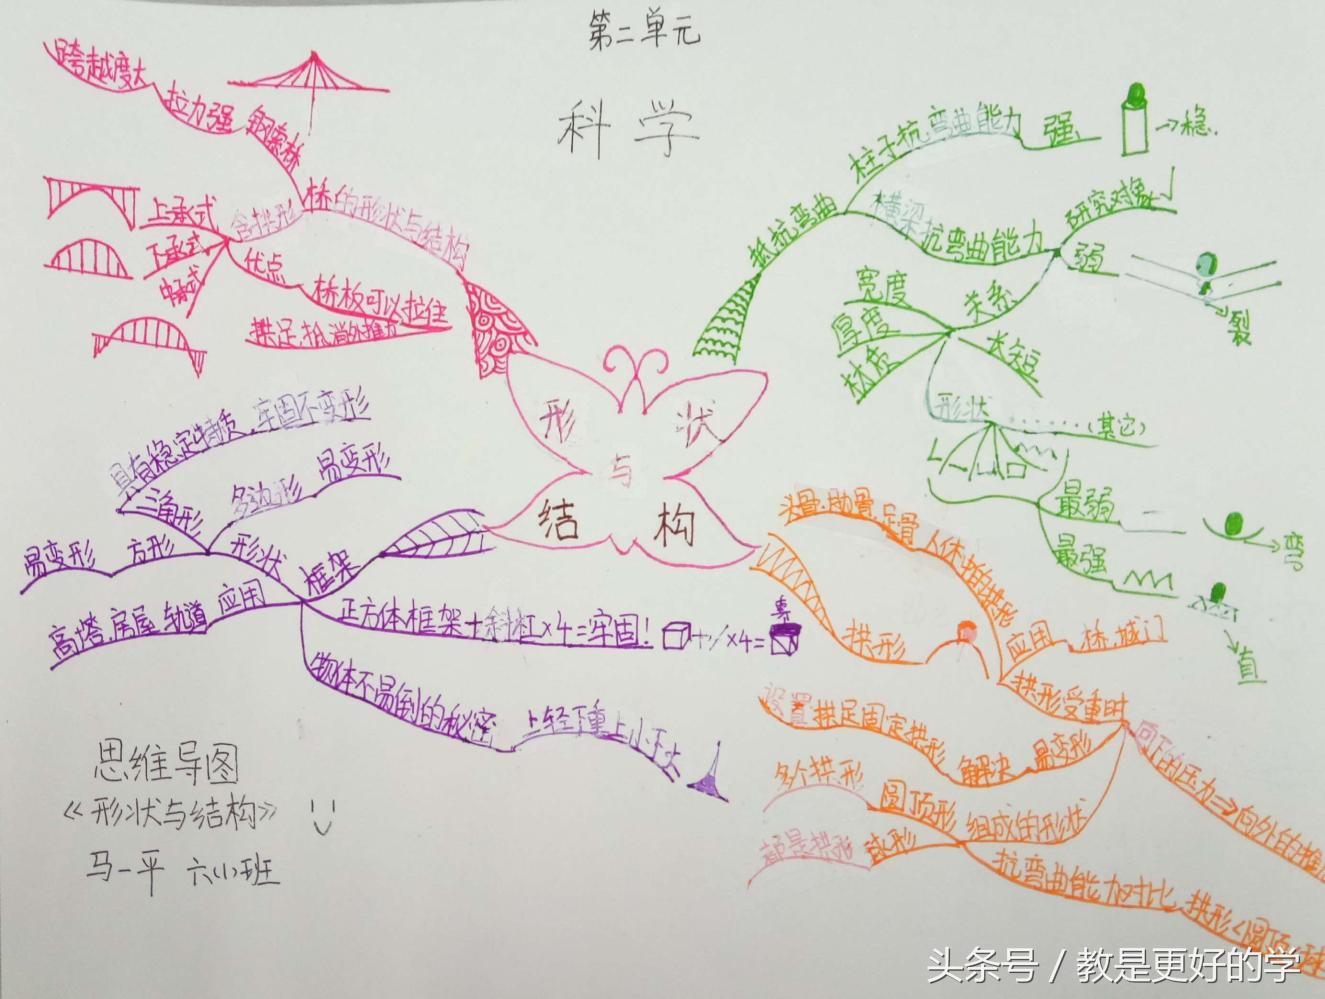 第二单元
科学
形状
与
结构
跨越度大
拉力强
钢索桥
桥的形状与结构
含拱形
上承式
下承式
中承式
优点
桥板可以拉住
拱足抵消外推力
抵抗弯曲
柱子抗弯曲能力
强
→稳.
横梁抗弯曲能力
研究对象
弱
→裂
关系
宽度
厚度
材质
长短
形状
(其它)
最弱
→弯
最强
→直
具有稳定特质
牢固不变形
三角形
多边形
易变形
易变形
方形
形状
框架
高塔.房屋
轨道
应用
正方体框架+斜杠×4=牢固!
+/×4=
物体不易倒的秘密
上轻下重上小下大
头骨.肋骨.足骨
人体中的拱形
拱形
应用
桥.城门
拱形受重时
向下的压力⇒向外的推
设置拱足固定拱形
解决
易变形
多个拱形
圆顶形
组成的形状
都是拱形
球形
抗弯曲能力对比
拱形<圆顶
思维导图
《形状与结构》
马一平
头条号 / 教是更好的学